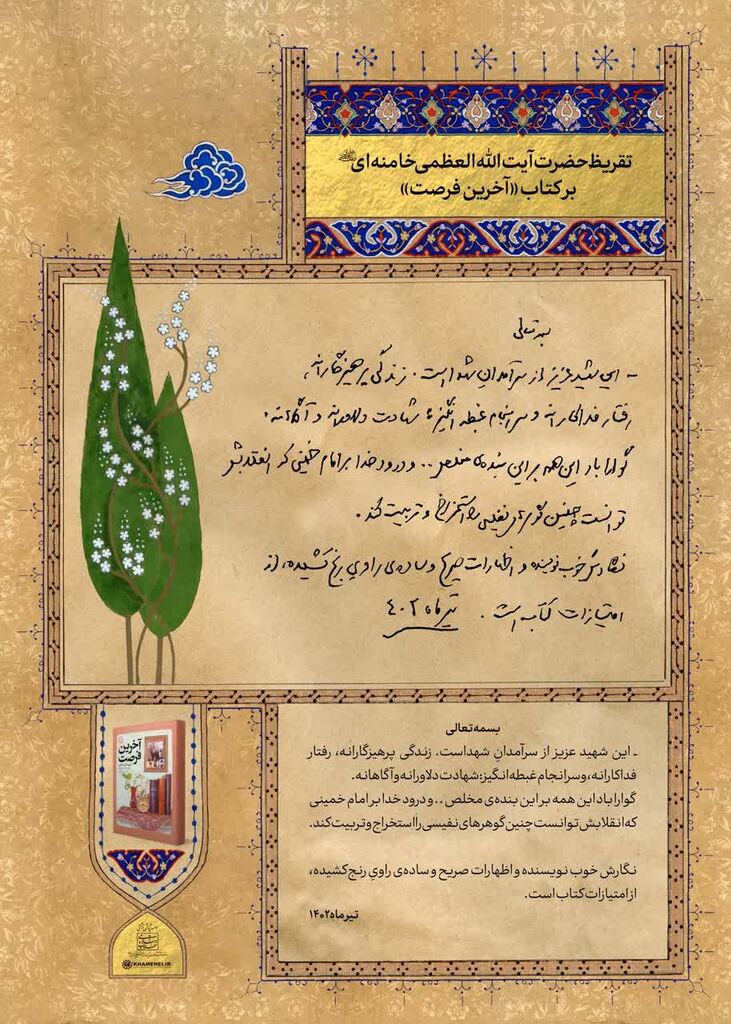 تقریظ حضرت آیت الله العظمی خامنه ای
بر کتاب ((آخرین فرصت))
بسمه تعالی
ـ این شهید عزیز از سرآمدان شهدا است. زندگی پرهیزگارانه،
رفتار فداکارانه و سرانجام غبطه انگیز؛ شهادت دلاورانه و آگاهانه.
گوارا باد این همه بر این بنده‌ی مخلص .. و درود خدا بر امام خمینی که انقلابش
توانست چنین گوهرهای نفیسی را استخراج و تربیت کند.
نگارش خوب نویسنده و اظهارات صریح و ساده‌ی راوی رنج کشیده، از
امتیازات کتاب است. تیر ماه ۴۰۲
بسمه تعالی
ـ این شهید عزیز از سرآمدانِ شهداست. زندگی پرهیزگارانه، رفتار
فداکارانه، و سرانجام غبطه انگیز؛ شهادت دلاورانه و آگاهانه.
گوارا باد این همه بر این بنده‌ی مخلص .. و درود خدا بر امام خمینی
که انقلابش توانست چنین گوهرهای نفیسی را استخراج و تربیت کند.
نگارش خوب نویسنده و اظهارات صریح و ساده‌ی راویِ رنج کشیده،
از امتیازات کتاب است.
تیر ماه ۱۴۰۲
آخرین
فرصت
KHAMENEI.IR